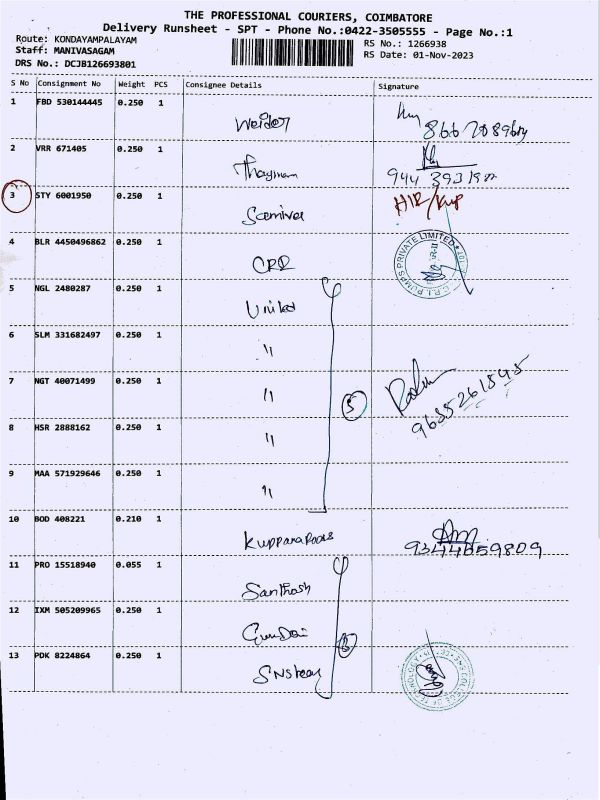 THE PROFESSIONAL COURIERS, COIMBATORE
Delivery Runsheet - SPT - Phone No.:0422-3505555 - Page No.:1
Route: KONDAYAMPALAYAM
Staff: MANIVASAGAM
DRS No.: DCJB126693801
RS No.: 1266938
RS Date: 01-Nov-2023
S No Consignment No Weight PCS Consignee Details Signature
1 FBD 530144445 0.250 1
Weider
2 VRR 671405 0.250 1
3 STY 6001950 0.250 1
4 BLR 4450496862 0.250 1
CRI
PUMPS PRIVATE LIMITED
5 NGL 2480287 0.250 1
United
6 SLM 331682497 0.250 1
"
7 NGT 40071499 0.250 1
"
5
9655261545
8 HSR 2888162 0.250 1
"
9 MAA 571929646 0.250 1
"
10 BOD 408221 0.210 1
9344659809
11 PRO 15518940 0.055 1
Santhosh
12 IXM 505209965 0.250 1
13 PDK 8224864 0.250 1
COLLEGE OF TECHNOLOGY